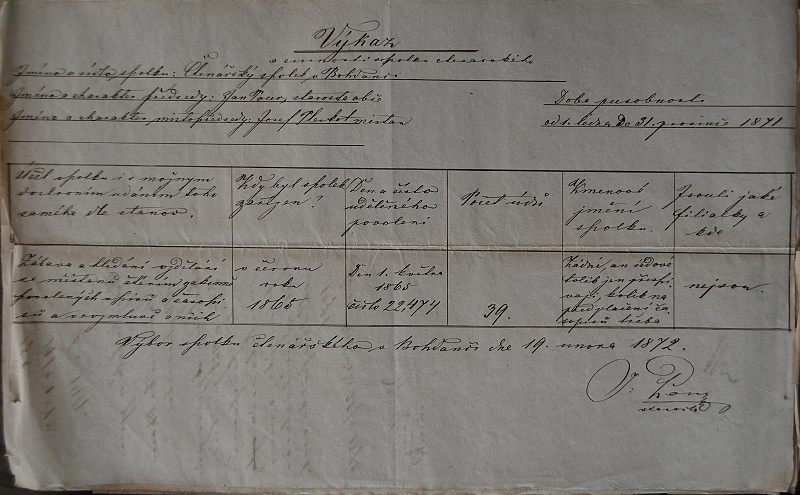 Výkaz
o cinnosti spolku čtenarského
Jméno a sídlo spolku: Čtenářský spolek v Bohdanči
Jméno a charakter předsedy: Jan Pour, starosta obce
Doba pusobnosti
Jméno a charakter místopředsedy: Josef Pleskot mistan
od 1. ledna Do 31. prosince 1871
Učel spolku i s možnym
doslovním udáním toho
samého dle stanov.
Kdy byl spolek
zařízen?
Den a číslo
uděleného
povolení
Počet údů
Kmenové
jmění
spolku.
Jsouli jaké
filialky a
kde
Zábava a hledání vzdělání
se místanů čtením
spisů a časopi-
sů a o nich
v červnu
roku
1865
Den 1. května
1865
číslo 22,474
39.
Žádné, an údové
tolik jen přispí-
vají, kolik na
předplacení ča-
sopisů třeba
nejsou.
Vybor spolku čtenářského v Bohdanči dne 19. unora 1872.
starosta